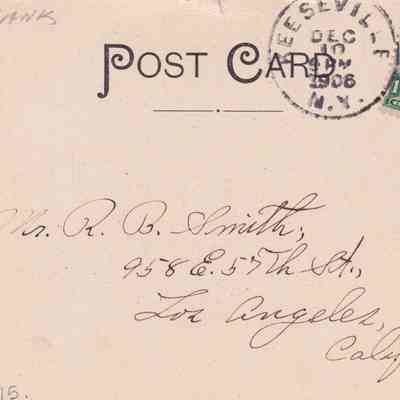 POST CARD
KEESEVILLE
DEC
10
1906
N.Y.
Mr. R. B. Smith,
958 E. 57th St.,
Los Angeles,
Calif
15.